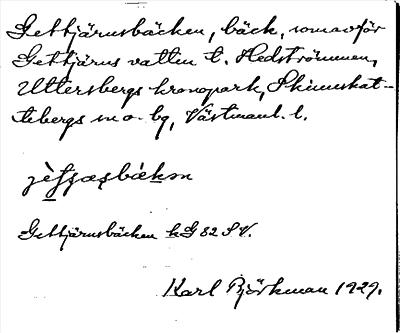 Gettjärnsbäcken, bäck, som avför
Gettjärns vatten t. Hedströmmen,
Uttersbergs kronopark, Skinnskat-
tebergs sn o. bg, Västmanl. l.
Gettjärnsbäcken kG 82 SV.
Karl Björkman 1929.